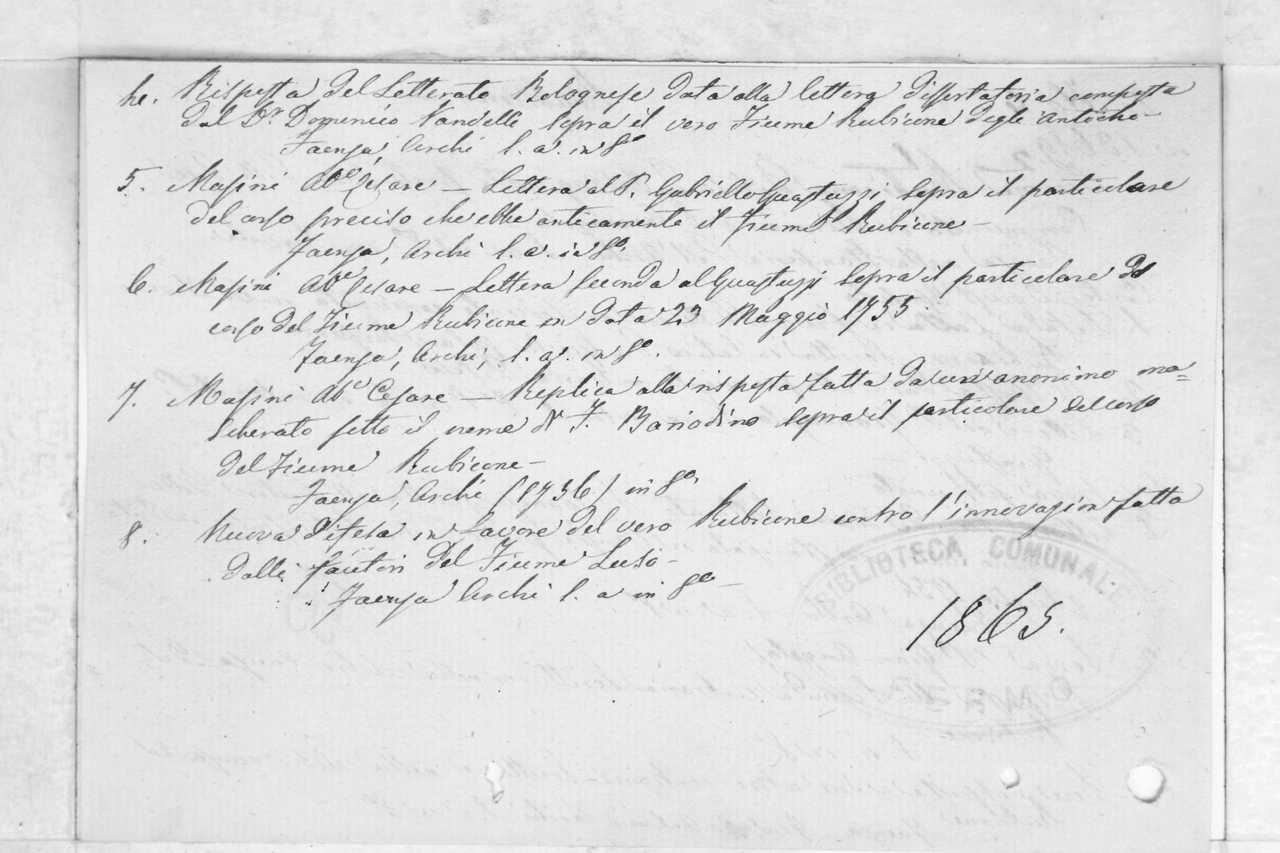 4. Risposta del Letterato Bolognese data alla lettera dissertatoria composta
dal Dr. Domenico Vandelli sopra il vero Fiume Rubicone degli Antichi—
Faenza, Archi s. a. in 8o
5. Masini Abe Cesare — Lettera al P. Gabriello Guastuzzi sopra il particolare
del corso preciso che ebbe anticamente il Fiume Rubicone—
Faenza, Archi s. a. in 8o.
6. Masini Abe Cesare — Lettera seconda al Guastuzzi sopra il particolare del
corso del Fiume Rubicone in data 23 Maggio 1755.
Faenza, Archi, s. a. in 8o.
7. Masini Abe Cesare — Replica alla risposta fatta da un anonimo ma=
scherato sotto il nome di F. sopra il particolare del corso
del Fiume Rubicone—
Faenza, Archi (1756) in 8o.
8. Nuova difesa in favore del vero Rubicone contro l'innovazion fatta
dalli fautori del Fiume Luso—
Faenza Archi s. a in 8o—
1865.
BIBLIOTECA COMUNALE